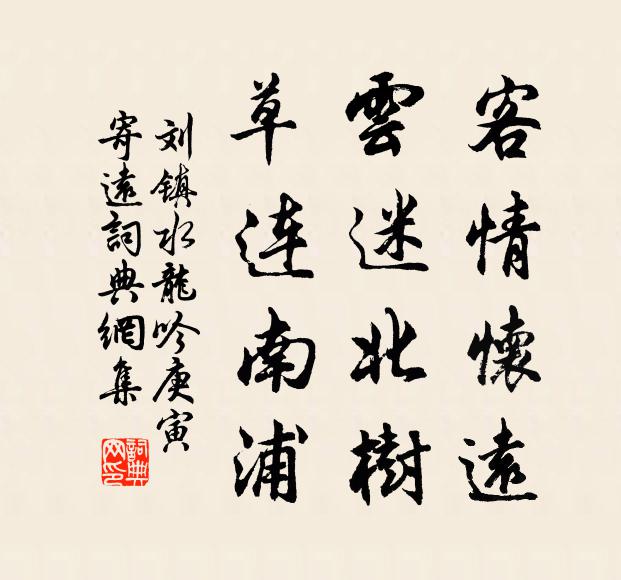 客情懷遠
雲迷北樹
草连南浦
刘镇水龍吟庚寅
寄遠詞典網集
詞典网印